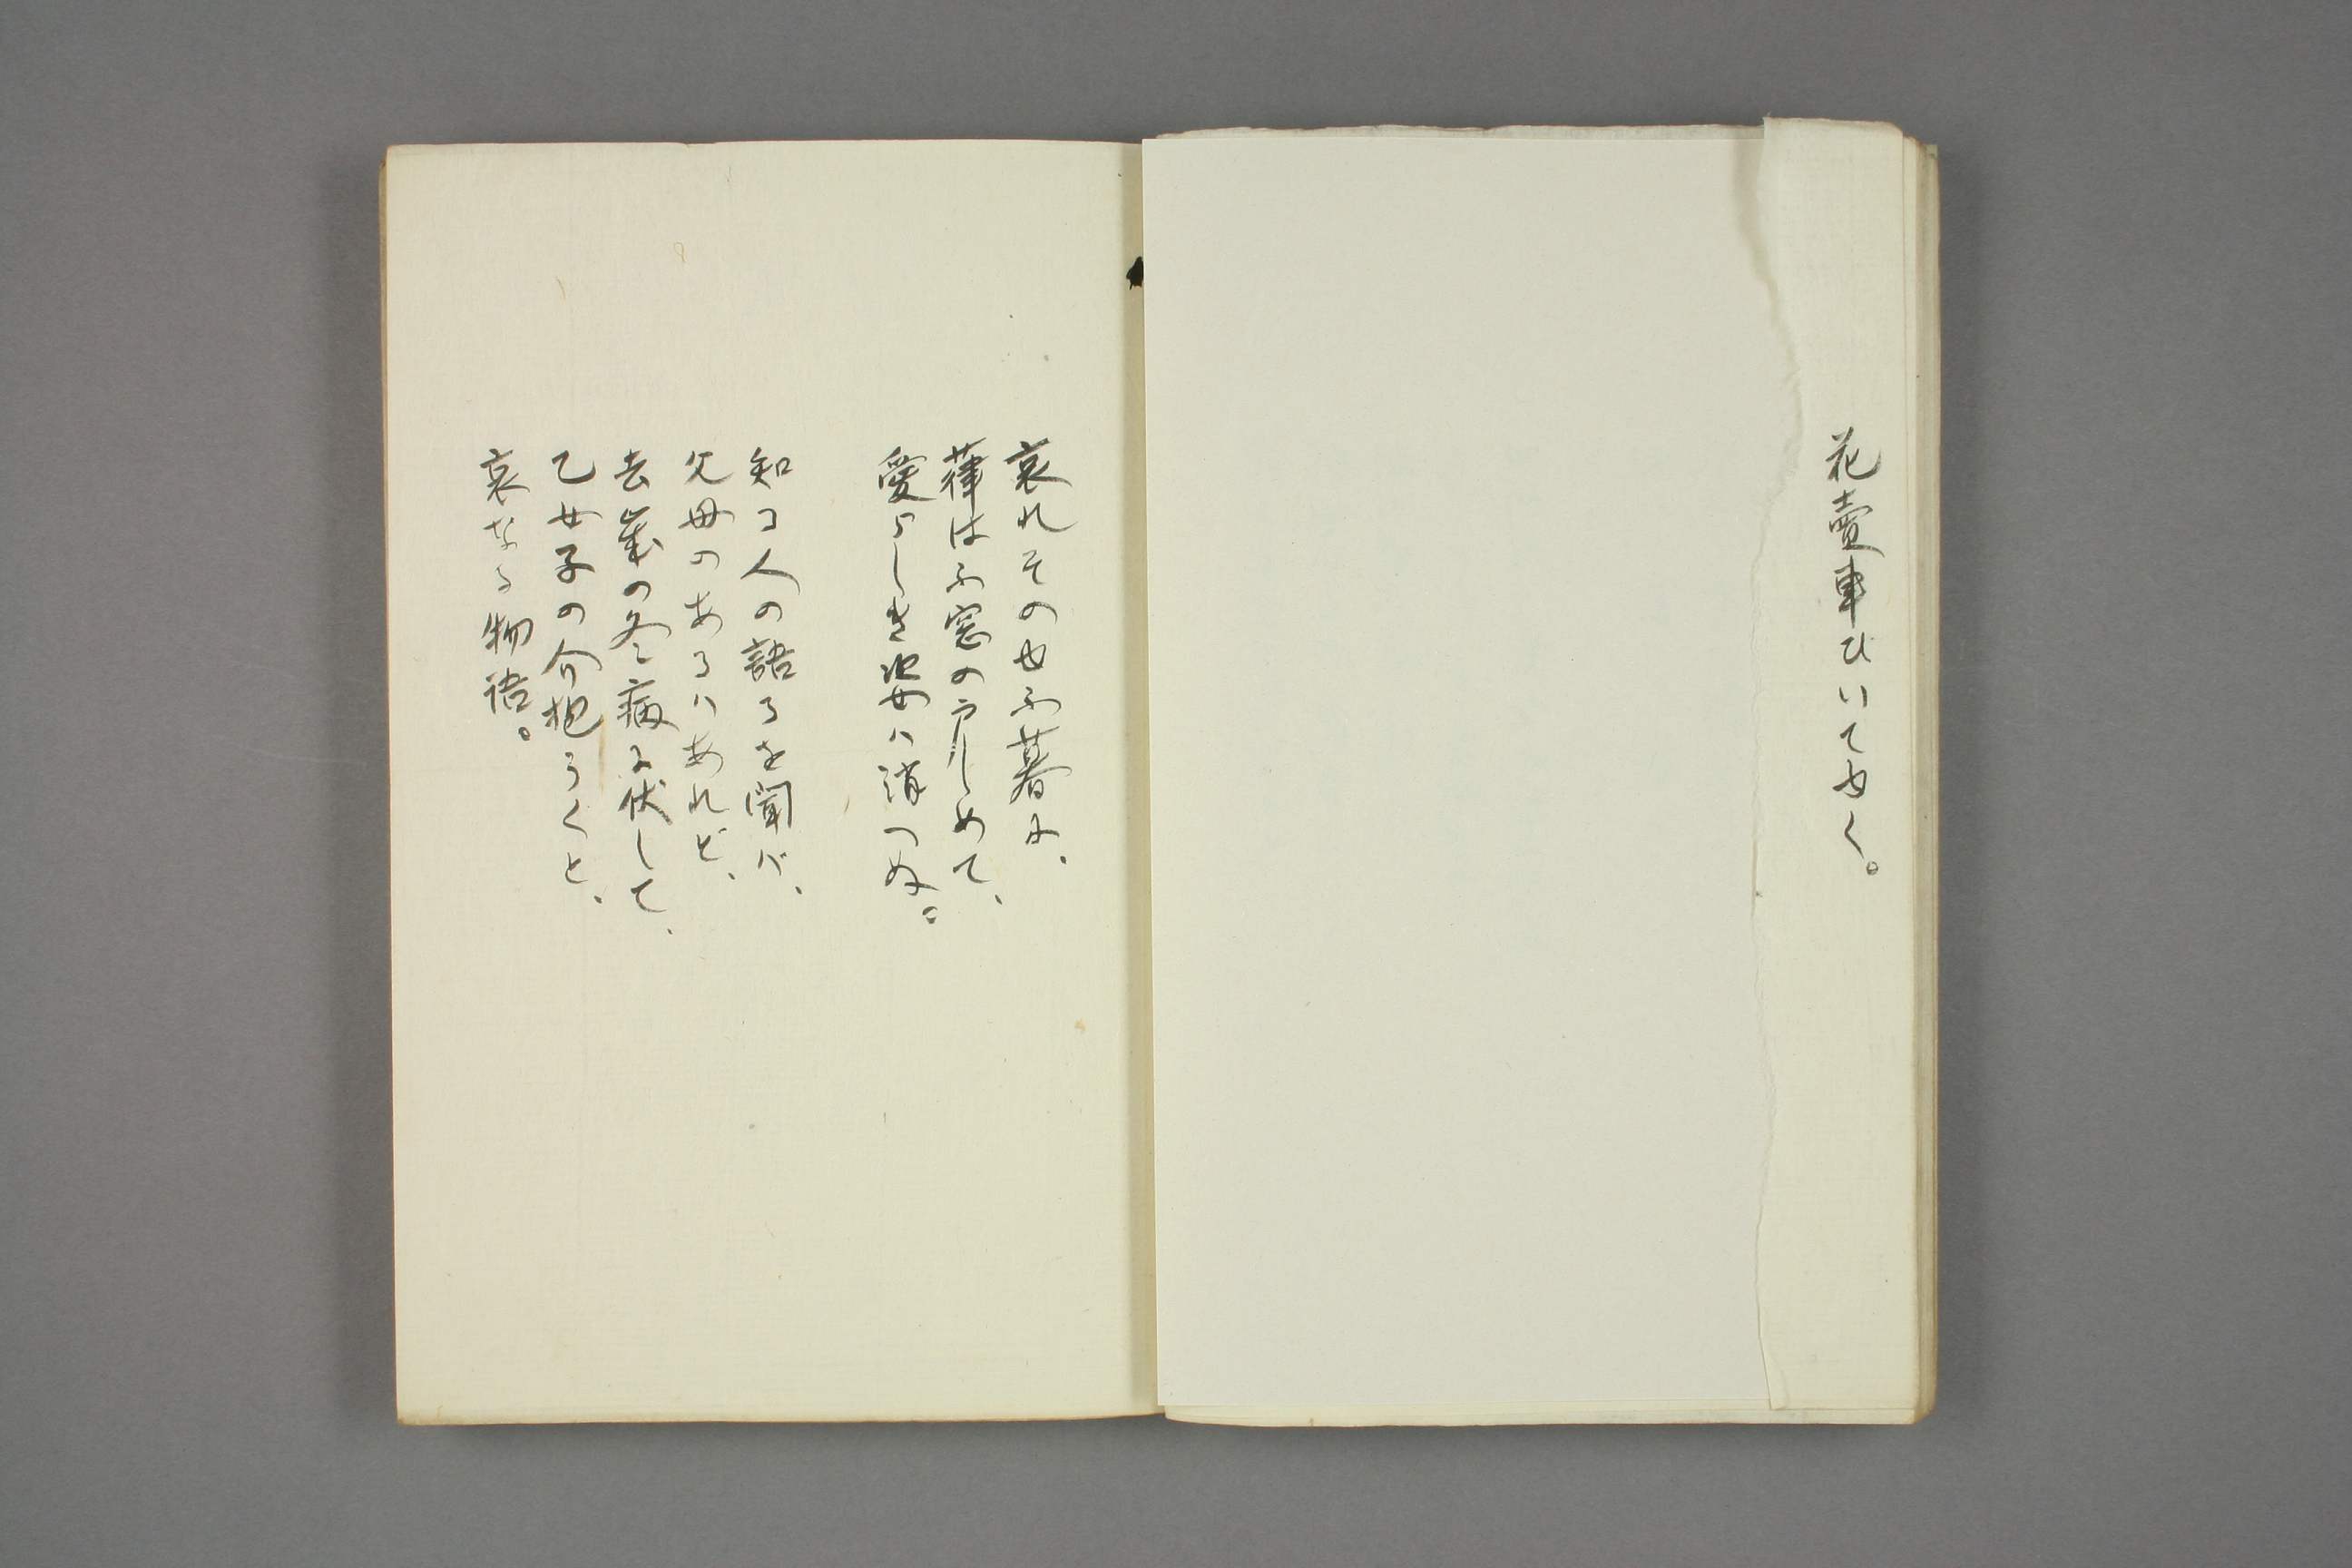 花賣車ひいてゆく。
哀れそのゆふ暮に、
葎はふ窓の戸しめて、
愛らしき姿ハ消つぬ。
知る人の語るを聞バ、
父母のあるハあれど、
去歳の冬病に伏して、
乙女子の介抱うくと、
哀なる物語。